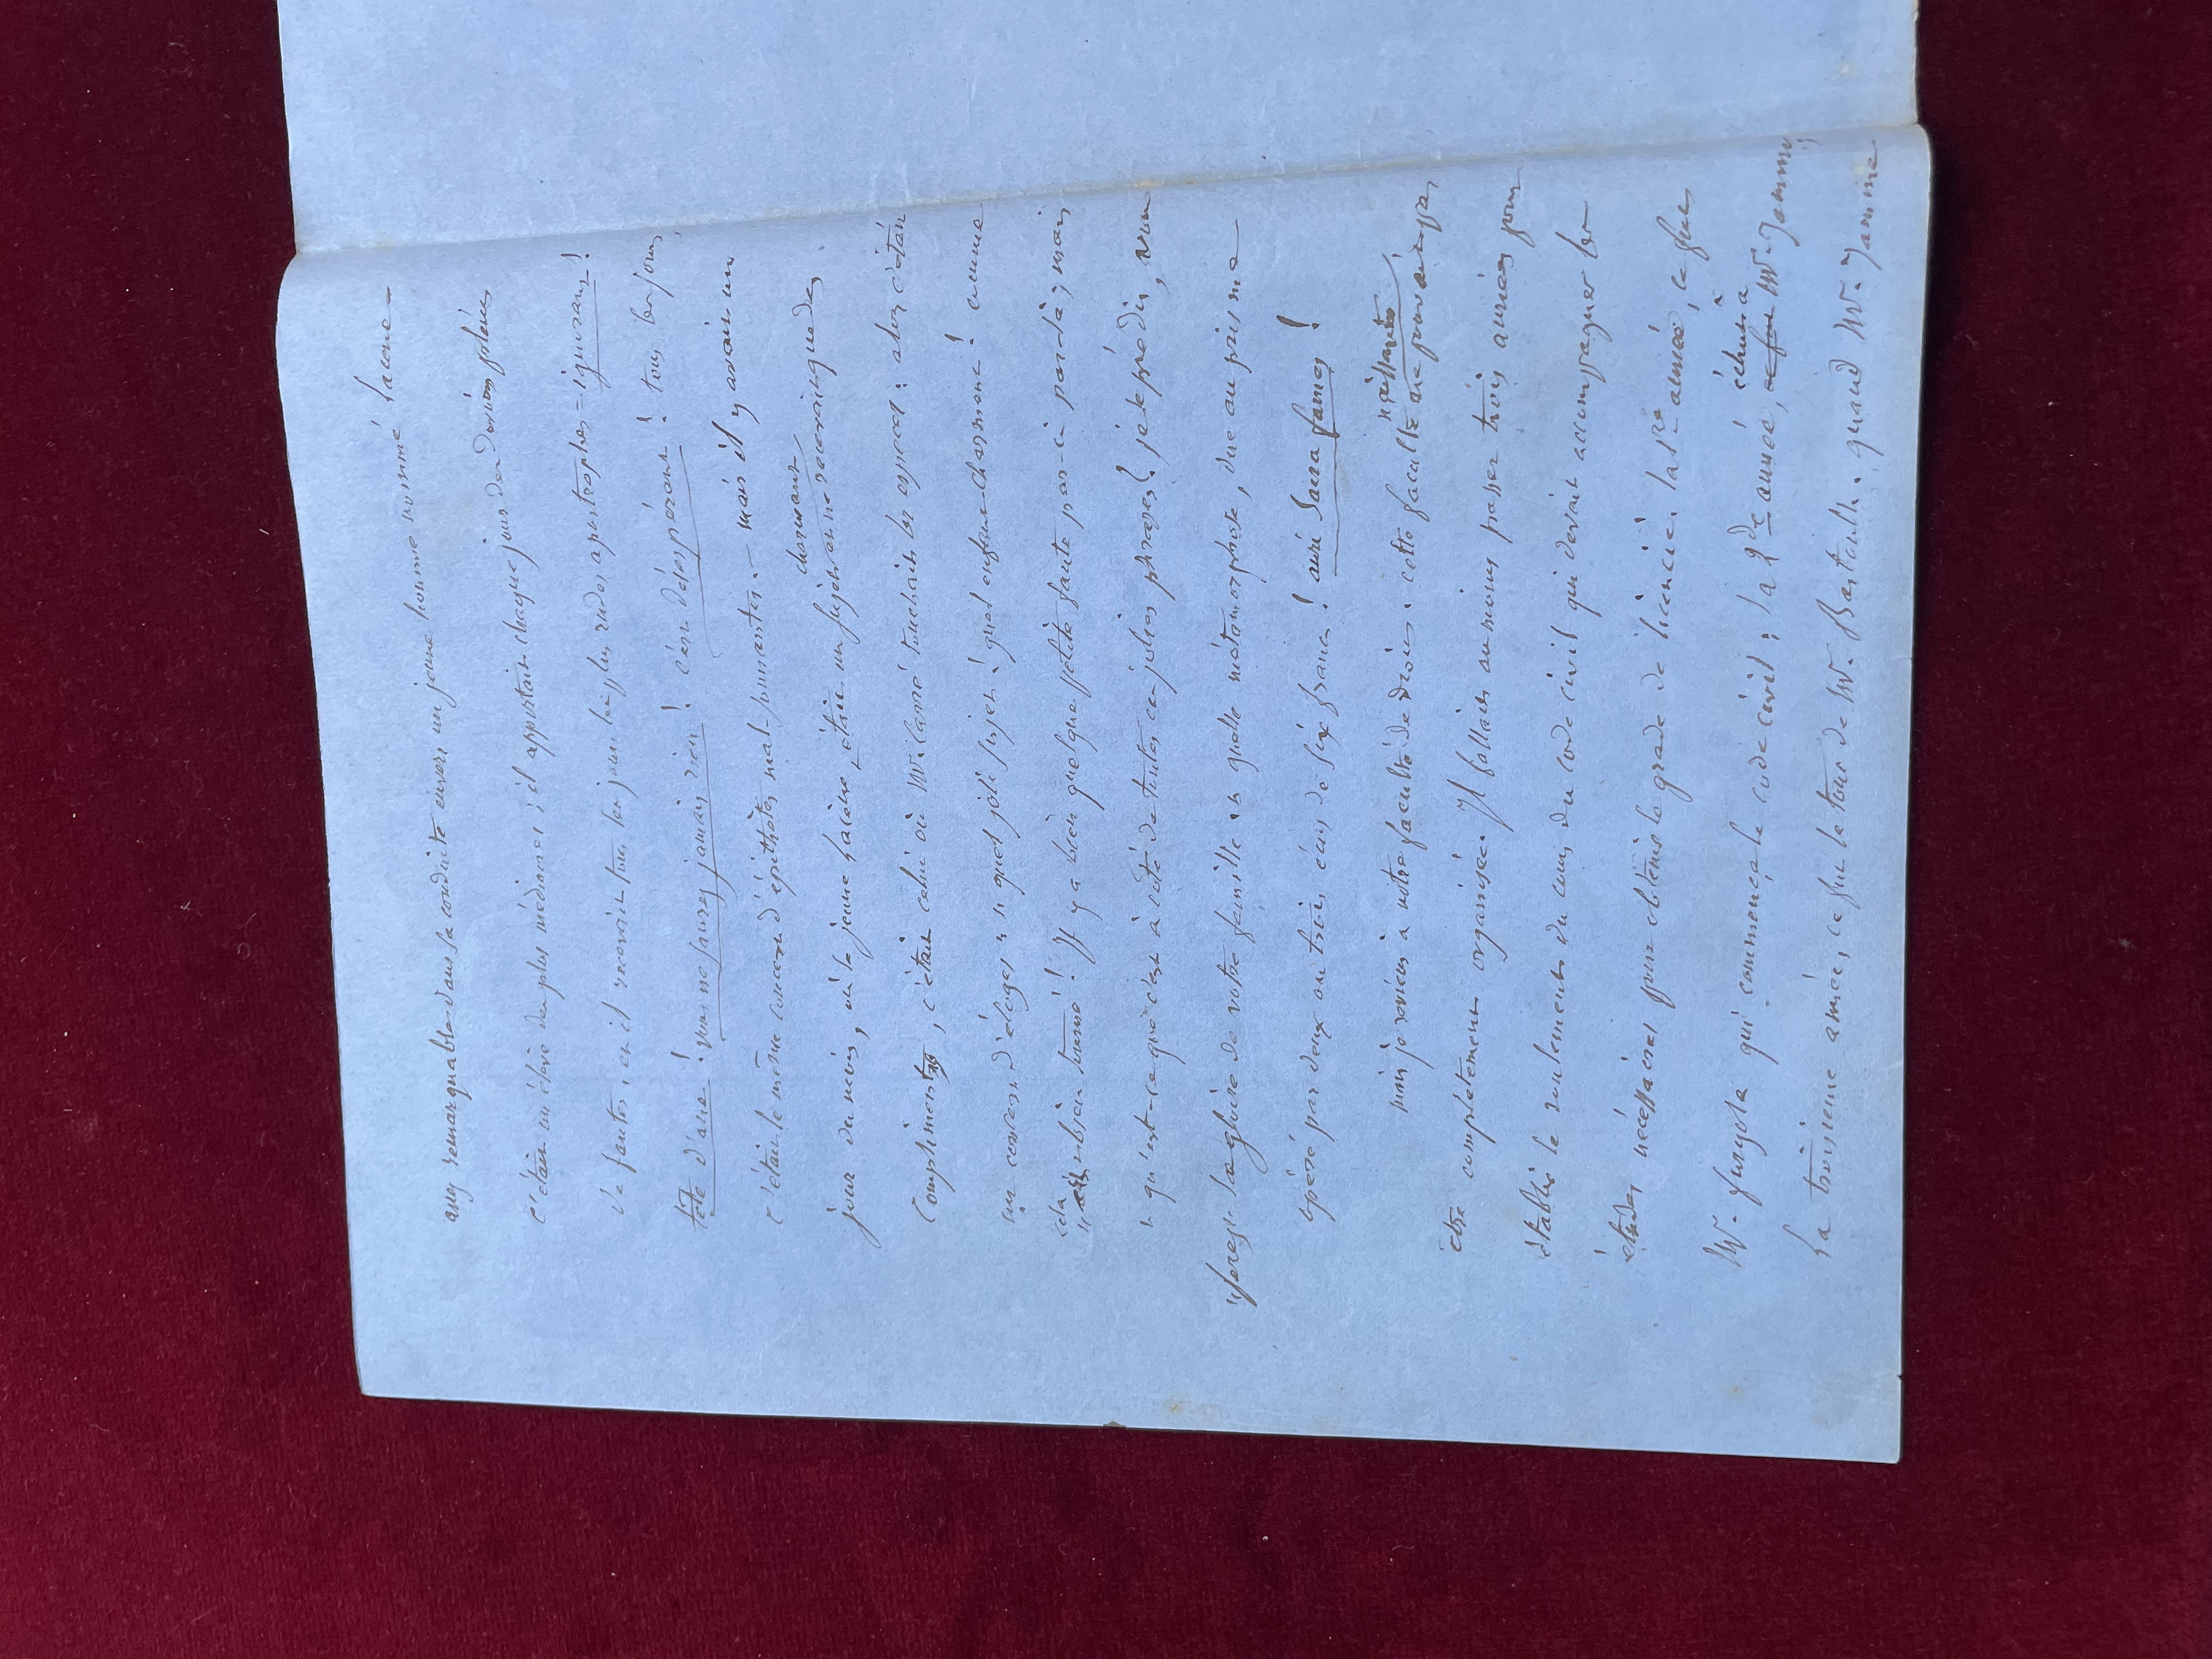 assez remarquable dans sa conduite envers un jeune homme nommé Lacone
c'était un élève des plus médiocres ; il apportait chaque jour des devoirs pleins
de fautes, et il recevait tous les jours les plus rudes apostrophes = ignorans !
tête d'ane ! vous ne saurez jamais rien ! c'est désespérant ! tous les jours
c'était le même concert d'épithètes mal-sonnantes. — mais il y avait un
jour du mois, où le jeune Lacène était un sujet charmant et ne recevait que des
compliments, c'était celui où Mr. Carré touchait les especes : alors c'était
un concert d'éloges " quel joli sujet ! quel enfant charmant ! comme
" cela est bien tourné ! Il y a bien quelque petite faute par-ci par-là ; mais
" qu'est-ce que c'est à côté de toutes ces jolies phrases ? je le prédis, vous
" serez la gloire de votre famille " quelle métamorphose, due au prisme
opéré par deux ou trois écus de six francs ! auri sacra fames !
mais je reviens à notre faculté de droit : cette faculté naissante
être complètement organisée. Il fallait au moins passer trois années pour
établir le roulement du cours du code civil qui devait accompagner les
études nécessaires pour obtenir le grade de licencié. la 1re année, ce fut
Mr. qui commença le code civil : la 2de année, ce fut échut à Mr.
La troisieme année, ce fut le tour de Mr. quand Mr.